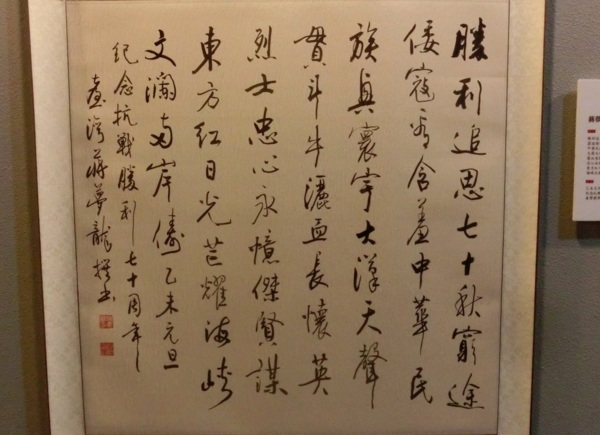 勝利追思七十秋窮途
倭寇含羞中華民
族興寰宇大漢天聲
貫斗牛灑血長懷英
烈士忠心永憶傑賢謀
東方紅日光芒耀海峽
文瀾兩岸儔乙未元旦
紀念抗戰勝利七十周年
臺灣蔣夢龍撰書